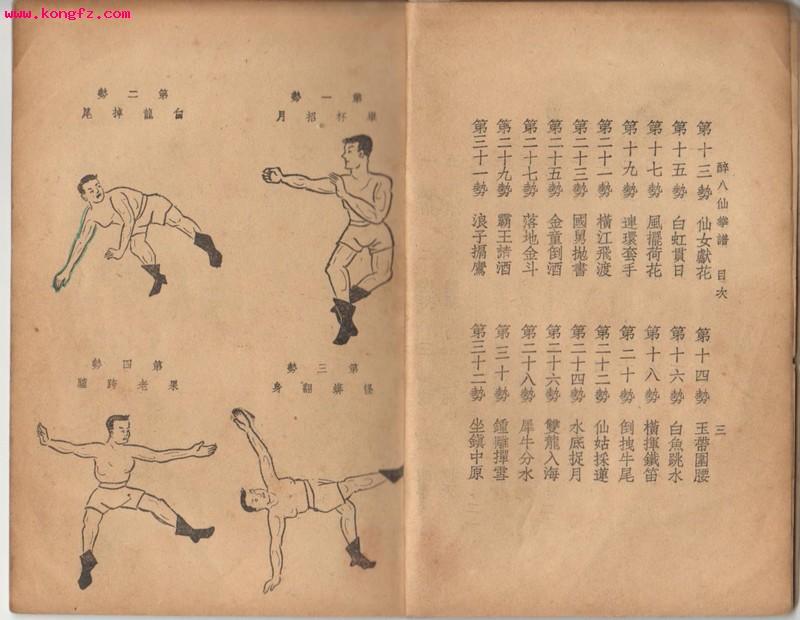 www.kongfz.com
醉八仙拳譜 目次 三
第十三勢 仙女獻花 第十四勢 玉帶圍腰
第十五勢 白虹貫日 第十六勢 白魚跳水
第十七勢 風擺荷花 第十八勢 橫揮鐵笛
第十九勢 連環套手 第二十勢 倒拽牛尾
第二十一勢 橫江飛渡 第二十二勢 仙姑採蓮
第二十三勢 國舅拋書 第二十四勢 水底捉月
第二十五勢 金童倒酒 第二十六勢 雙龍入海
第二十七勢 落地金斗 第二十八勢 犀牛分水
第二十九勢 霸王請酒 第三十勢 鍾離揮雲
第三十一勢 浪子搧鷹 第三十二勢 坐鎮中原
第一勢
舉杯招月
第二勢
白龍掉尾
第三勢
怪蟒翻身
第四勢
果老跨驢